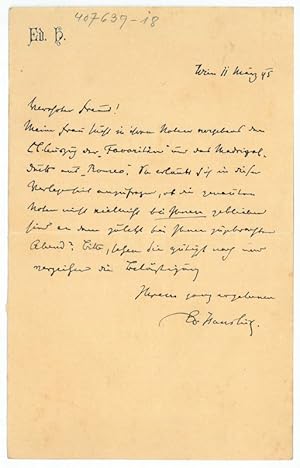 407639-18
Ed. H.
Wien 11 März 95
Verehrter Freund!
Meine Frau sucht in ihren Noten vergebens den
Clavierauszug der „Favoritin" und das Madrigal-
Duett aus „Romeo". Sie erlaubt sich in dieser
Verlegenheit anzufragen, ob die genannten
Noten nicht vielleicht bei Ihnen geblieben
sind an dem zuletzt bei Ihnen zugebrachten
Abend? Bitte, sehen Sie gütigst nach und
verzeihen die Belästigung
Ihrem ganz ergebenen
Ed. Hanslick.